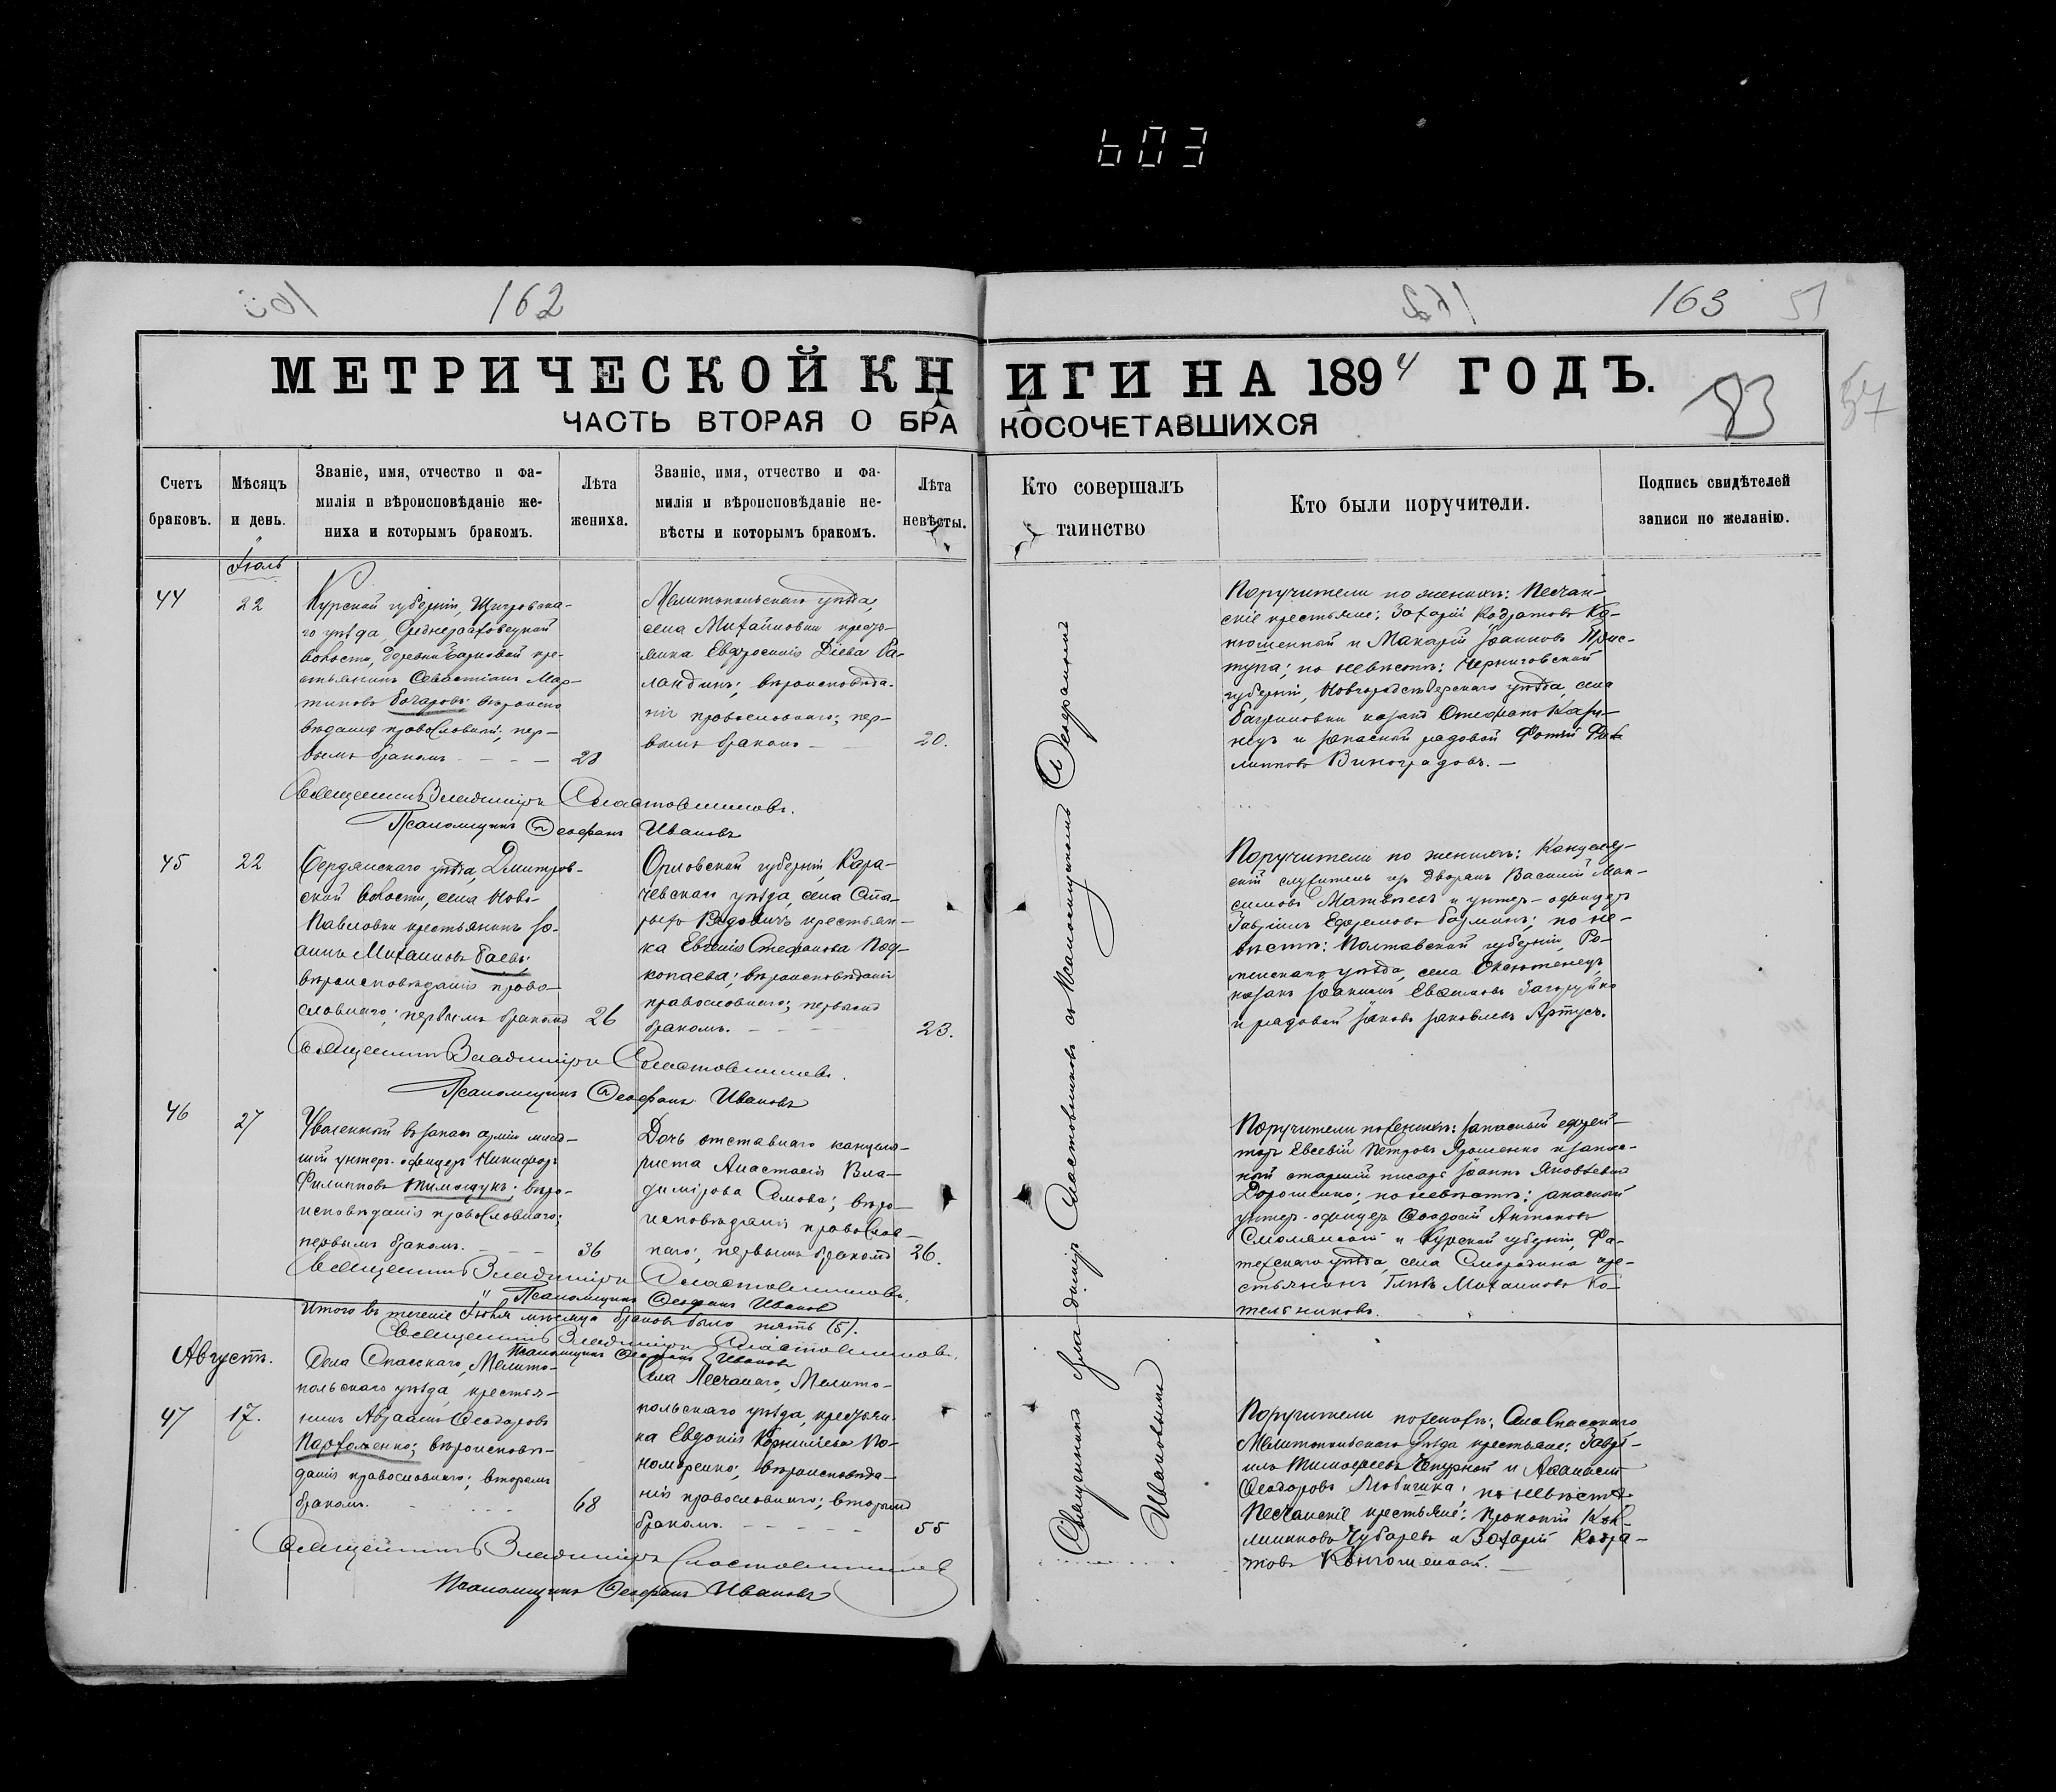 603
162
163
51
МЕТРИЧЕСКОЙ КНИГИ НА 1894 ГОДЪ.
83
57
ЧАСТЬ ВТОРАЯ О БРАКОСОЧЕТАВШИХСЯ
Счетъ браковъ.
Мѣсяцъ и день.
Званіе, имя, отчество и фа-
милія и вѣроисповѣданіе же-
ниха и которымъ бракомъ.
Лѣта жениха.
Званіе, имя, отчество и фа-
милія и вѣроисповѣданіе не-
вѣсты и которымъ бракомъ.
Лѣта невѣсты.
Кто совершалъ таинство
Кто были поручители.
Подпись свидѣтелей
записи по желанію.
Іюль
44
22
Курской губерніи, Щигровска-
го уѣзда,
волости, деревни крe-
стьянинъ Севастіанъ Мар-
тиновъ Бочаровъ; вѣроиспо
вѣданія православной; пер-
вымъ бракомъ
28
Мелитопольскаго уѣзда,
села Михайловки крестья-
нина Евфросинія Діева Ба-
ландинъ; вѣроисповѣда-
нія православнаго; пер-
вымъ бракомъ
20.
Поручители по женихѣ: Песчан-
скіе крестьяне: Захарій Кодратовъ Ко-
нюшенный и Макарій Іоанновъ
тупа; по невѣстѣ: Черниговской
губерніи, Новгородсѣверскаго уѣзда, села
козакъ Стефанъ
нецъ и запасный рядовой Фотій Фи-
липповъ Виноградовъ.
Священникъ Владиміръ Сластовниковъ.
Псаломщикъ Ѳеофанъ Ивановъ
45
22
Бердянскаго уѣзда, Дмитров-
ской волости, села Ново-
Павловки крестьянинъ Іо-
аннъ Михаиловъ Баевъ;
вѣроисповѣданія право-
славнаго; первымъ бракомъ
26
Орловской губерніи, Кара-
чевскаго уѣзда, села Ста-
рыхъ крестьян-
ка Евгенія Стефанова Под-
копаева; вѣроисповѣданія
православнаго; первымъ
бракомъ.
23.
Поручители по женихѣ: Канцеляр-
скій служитель изъ дворянъ Василій Мак-
симовъ Матвѣевъ и унтер-офицеръ
Гавріилъ Ефремовъ по не-
вѣстѣ: Полтавской губерніи, Ро-
менскаго уѣзда, села
козакъ Іоакимъ Евѳимовъ Загоруйко
и рядовой Іаковъ Іаковлевъ Артусъ.
Священникъ Владиміръ Сластовниковъ.
Псаломщикъ Ѳеофанъ Ивановъ
46
27
Уволенный въ запасъ арміи млад-
шій унтеръ-офицеръ Никифоръ
Филипповъ Тимощукъ; вѣро-
исповѣданія православнаго;
первымъ бракомъ.
36
Дочь отставнаго канцеля-
риста Анастасія Вла-
димірова Сомова; вѣро-
исповѣданія православ-
наго; первымъ бракомъ
26.
Поручители по женихѣ: запасный ефрей-
торъ Евсевій Петровъ Ярошенко и запас-
ный старшій писарь Іоаннъ Яковлевъ
Дорошенко; по невѣстѣ: запасный
унтер-офицеръ Ѳеодосій Антоновъ
Смоленскій и Курской губерніи, Фа-
тежскаго уѣзда, села Смородина кре-
стьянинъ Глѣбъ Михаиловъ Ко-
тельниковъ.
Священникъ Владиміръ Сластовниковъ.
Псаломщикъ Ѳеофанъ Ивановъ
Итого въ теченіе Іюля мѣсяца браковъ было пять (5).
Священникъ Владиміръ Сластовниковъ.
Псаломщикъ Ѳеофанъ Ивановъ
Августъ.
47
17.
Села Спасскаго, Мелито-
польскаго уѣзда, крестья-
нинъ Авраамъ Ѳеодоровъ
Пархоменко; вѣроисповѣ-
данія православнаго; вторымъ
бракомъ.
68
Села Песчанаго, Мелито-
польскаго уѣзда, крестьян-
ка Евдокія Корнилiева По-
номаренко; вѣроисповѣда-
нія православнаго; вторымъ
бракомъ.
55
Поручители по женихѣ: села Спасскаго
Мелитопольскаго уѣзда крестьяне: Гаврі-
илъ Тимоѳеевъ Чепурной и Аѳанасій
Ѳеодоровъ по невѣстѣ:
Песчанскіе крестьяне: Прокопій
Чубаревъ и Захарій Кодра-
товъ Конюшенный.
Священникъ Владиміръ Сластовниковъ
Псаломщикъ Ѳеофанъ Ивановъ
Священникъ Владиміръ Сластовниковъ съ Псаломщикомъ Ѳеофаномъ
Ивановымъ